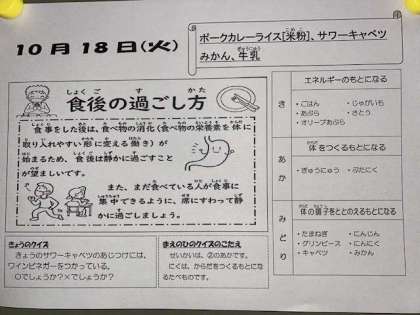 10月18日(火)
ポークカレーライス[米粉]、サワーキャベツ
みかん、牛乳
食後の過ごし方
食事をした後は、食べ物の消化(食べ物の栄養を体に
取り入れやすい形に変える働き)が
始まるため、食後は静かに過ごすこと
が望ましいです。
また、まだ食べている人が食事に
集中できるように、席にすわって静
かに過ごしましょう。
きょうのクイズ
きょうのサワーキャベツのあじつけには、
ワインビネガーをつかっている。
〇でしょうか?×でしょうか?
まえのひのクイズのこたえ
せいかいは、②のあかです。
にくは、からだをつくるもとにな
るたべものです。
エネルギーのもとになる
き
・ごはん ・じゃがいも
・あぶら ・さとう
・オリーブあぶら
体をつくるもとになる
あか
・ぎゅうにゅう ・ぶたにく
体の調子をととのえるもとになる
みどり
・たまねぎ ・にんじん
・グリンピース ・にんにく
・キャベツ ・みかん